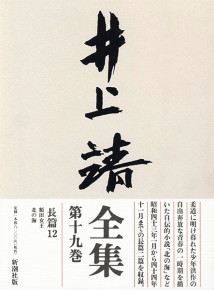 井上靖
柔道に明け暮れた少年洪作の
自由奔放な青春の一時期を描
いた自伝的小説「北の海」など
昭和四十三年一月から四十四年
十一月までの長篇二篇を収録。
全集
第十九巻
長篇12
額田女王
北の海
新潮社版